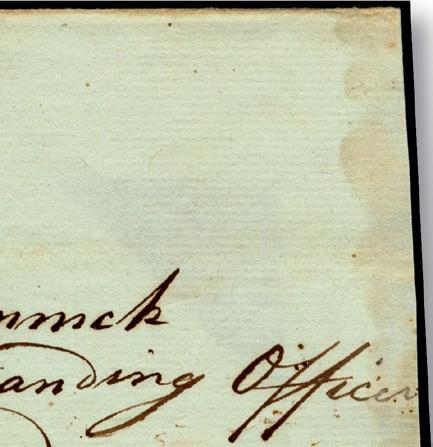 mmck
anding Officer